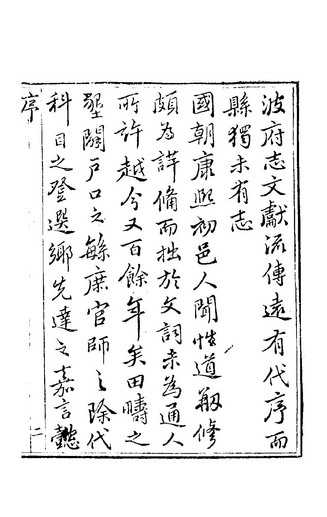 波府志文獻流傳遠有代序而
縣獨未有志
國朝康熙初邑人聞性道剏修
頗為詳備而拙於文詞未為通人
所許越今又百餘年矣田疇之
墾闢戶口之緐庶官師之除代
科目之登選鄉先達之嘉言懿
序
二